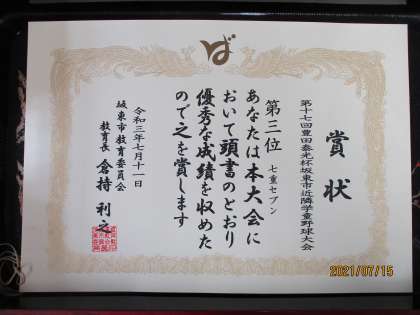 ば
賞状
第十七回豊田泰光杯坂東市近隣学童野球大会
第三位
七重セブン
あなたは本大会に
おいて頭書のとおり
優秀な成績を収めた
ので之を賞します
令和三年七月十一日
坂東市教育委員会
教育長 倉持利之
2021/07/15